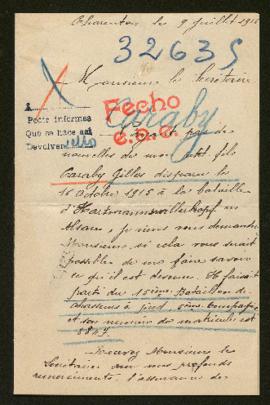 Charenton les 9 Juillet 1916
32635
Monsieur le Secrétaire
Pedir informes
Que se hace así
Devolver
Fecho
Caraby
pas de
nouvelles de mon petit fils
Caraby Gilles disparu le
16 Octobre 1915 à la bataille
d'Hartmannswillerkopf en
Alsace, je viens vous demander
Monsieur, si cela vous serait
possible de me faire savoir
ce qu'il est devenu. Il faisait
parti du 15ème Bataillon de
chasseurs à pied, 5ème Compagnie
et son numéro de matricule est
Recevez Monsieur le
Secrétaire mes profonds
remerciements, l'assurance des